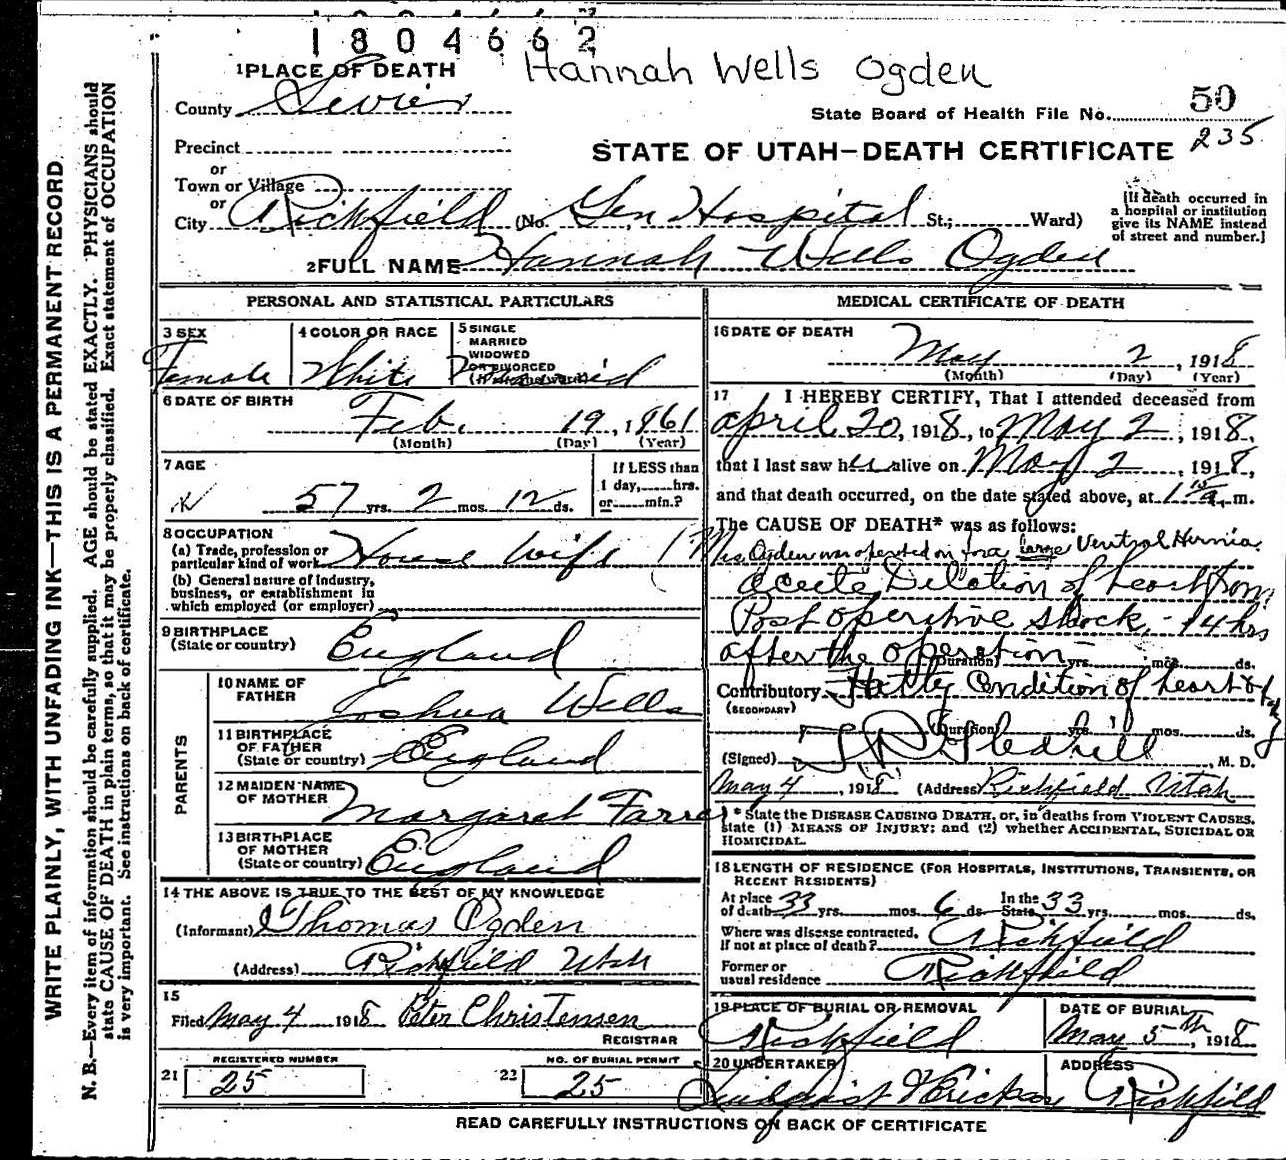 1804662
Hannah Wells Ogden
1 PLACE OF DEATH
County Sevier
State Board of Health File No. 50
235
Precinct
or
STATE OF UTAH—DEATH CERTIFICATE
Town or Village
or
City Richfield (No. Gen Hospital St.; Ward)
[If death occurred in a hospital or institution give its NAME instead of street and number.]
2 FULL NAME Hannah Wells Ogden
PERSONAL AND STATISTICAL PARTICULARS
3 SEX
Female
4 COLOR OR RACE
White
5 SINGLE
MARRIED
WIDOWED
OR DIVORCED
(Write the word)
Married
6 DATE OF BIRTH
Feb. 19, 1861
(Month) (Day) (Year)
7 AGE
57 yrs. 2 mos. 12 ds.
If LESS than
1 day, hrs.
or min.?
8 OCCUPATION
(a) Trade, profession or
particular kind of work House Wife
(b) General nature of Industry,
business, or establishment in
which employed (or employer)
9 BIRTHPLACE
(State or country) England
PARENTS
10 NAME OF
FATHER Joshua Wells
11 BIRTHPLACE
OF FATHER
(State or country) England
12 MAIDEN NAME
OF MOTHER Margaret Farrer
13 BIRTHPLACE
OF MOTHER
(State or country) England
14 THE ABOVE IS TRUE TO THE BEST OF MY KNOWLEDGE
(Informant) Thomas Ogden
(Address) Richfield Utah
15
Filed May 4 1918 Peter Christensen
REGISTRAR
REGISTERED NUMBER
21 25
NO. OF BURIAL PERMIT
22 25
MEDICAL CERTIFICATE OF DEATH
16 DATE OF DEATH
May 2, 1918
(Month) (Day) (Year)
17 I HEREBY CERTIFY, That I attended deceased from
April 20, 1918, to May 2, 1918,
that I last saw her alive on May 2, 1918,
and that death occurred, on the date stated above, at 1 15 a. m.
The CAUSE OF DEATH* was as follows:
Mrs Ogden was operated on for a large Ventral Hernia.
acute Dilation of heart from
Post operative shock, - 14 hrs
after the operation
(Duration) yrs. mos. ds.
Contributory Fatty Condition of heart
(SECONDARY)
(Duration) yrs. mos. ds.
(Signed) Gledhill, M. D.
May 4, 1918 (Address) Richfield Utah
* State the DISEASE CAUSING DEATH, or, in deaths from VIOLENT CAUSES,
state (1) MEANS OF INJURY; and (2) whether ACCIDENTAL, SUICIDAL OR
HOMICIDAL.
18 LENGTH OF RESIDENCE (FOR HOSPITALS, INSTITUTIONS, TRANSIENTS, OR
RECENT RESIDENTS)
At place
of death 33 yrs. mos. 6 ds. In the State 33 yrs. mos. ds.
Where was disease contracted,
if not at place of death? Richfield
Former or
usual residence Richfield
19 PLACE OF BURIAL OR REMOVAL
Richfield
DATE OF BURIAL
May 5th, 1918
20 UNDERTAKER
ADDRESS
Richfield
READ CAREFULLY INSTRUCTIONS ON BACK OF CERTIFICATE
WRITE PLAINLY, WITH UNFADING INK—THIS IS A PERMANENT RECORD
N. B.—Every item of information should be carefully supplied. AGE should be stated EXACTLY. PHYSICIANS should
state CAUSE OF DEATH in plain terms, so that it may be properly classified. Exact statement of OCCUPATION
is very important. See instructions on back of certificate.